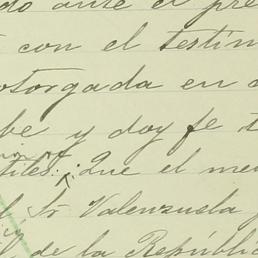 do ante el pre
con el testim
otorgada en
be y doy fe
tiles: Que el me
Sr Valenzuela
de la Repúblic